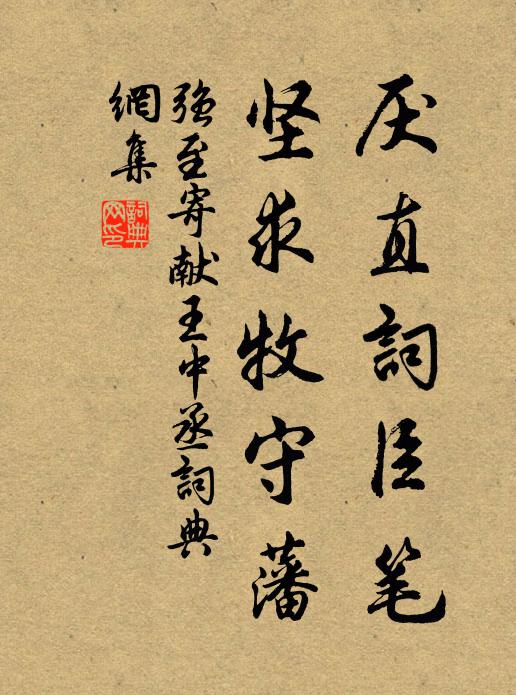 厌直詞臣笔
坚求牧守藩
强至寄献王中丞詞典
網集
詞典
网印